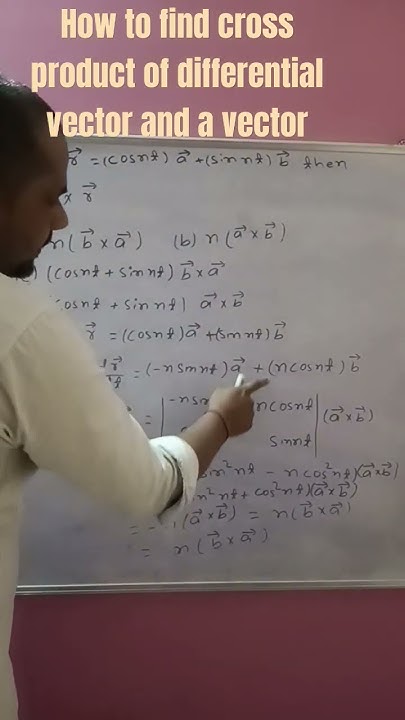 How to find cross
product of differential
vector and a vector
r⃗ = (cosnt) a⃗ + (sin nt) b⃗ then
× r⃗
n(b⃗ × a⃗) (b) n(a⃗ × b⃗)
(cosnt + sin nt) b⃗ × a⃗
cosnt + sin nt) a⃗ × b⃗
r⃗ = (cosnt) a⃗ + (sin nt) b⃗
dr⃗/dt = (-n sin nt) a⃗ + (n cosnt) b⃗
= | ncosnt | (a⃗ × b⃗)
sinnt
sin²nt - n cos²nt)(a⃗ × b⃗)
sin²nt + cos²nt)(a⃗ × b⃗)
(a⃗ × b⃗) = n(b⃗ × a⃗)
= n(b⃗ × a⃗)